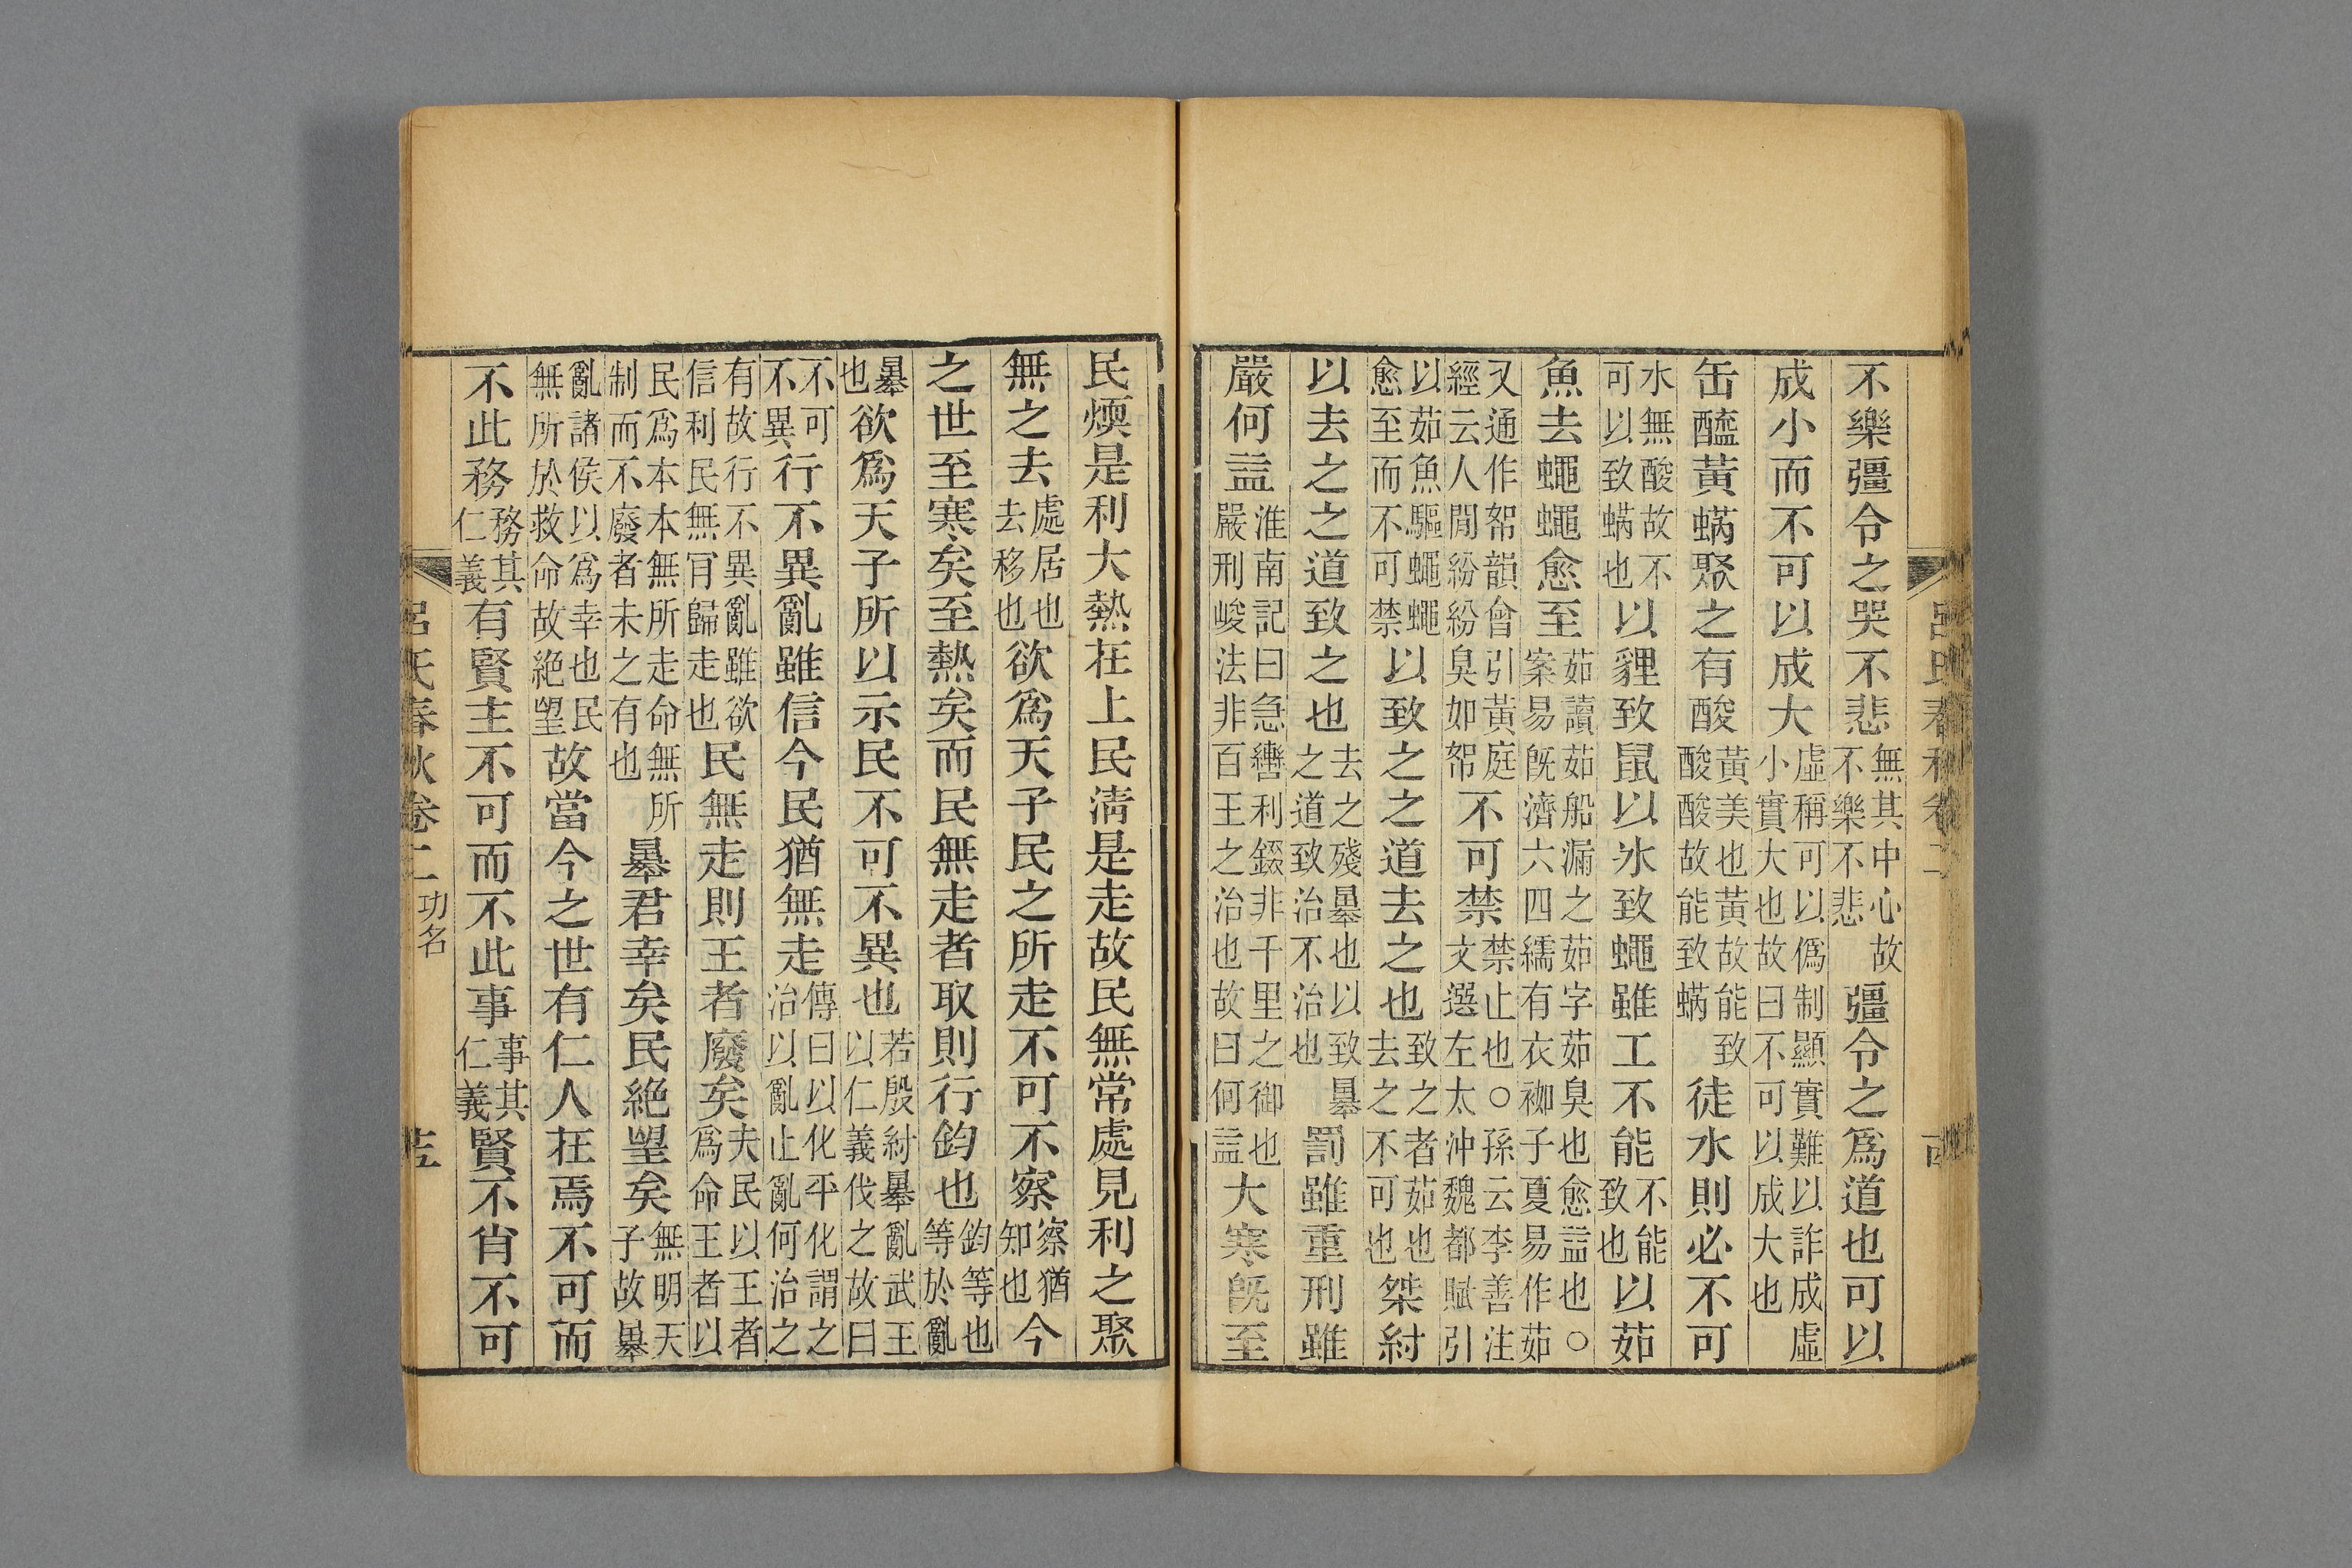 呂氏春秋卷二
不樂彊令之哭不悲無其中心故不樂不悲彊令之爲道也可以
成小而不可以成大虛稱可以僞制顯實難以詐成虛小實大也故曰不可以成大也
缶醯黃蜹聚之有酸黃美也黃故能致酸酸故能致蜹徒水則必不可
水無酸故不可以致蜹也以貍致鼠以冰致蠅雖工不能不能致也以茹
魚去蠅蠅愈至茹讀茹船漏之茹字茹臭也愈益也○案易旣濟六四繻有衣袽子夏易作茹
又通作帤韻會引黃庭經云人閒紛紛臭如帤不可禁禁止也○孫云李善注文選左太沖魏都賦引
以茹魚驅蠅蠅愈至而不可禁以致之之道去之也致之者茹也去之不可也桀紂
以去之之道致之也去之殘㬥也以致㬥之道致治不治也罰雖重刑雖
嚴何益淮南記曰急轡利錣非千里之御也嚴刑峻法非百王之治也故曰何益大寒旣至
民煗是利大熱在上民清是走故民無常處見利之聚
無之去處居也去移也欲爲天子民之所走不可不察察猶知也今
之世至寒矣至熱矣而民無走者取則行鈞也鈞等也等於亂
㬥也欲爲天子所以示民不可不異也若殷紂㬥亂武王以仁義伐之故曰
不可不異行不異亂雖信今民猶無走傳曰以化平化謂之治以亂止亂何治之
有故行不異亂雖欲信利民無肎歸走也民無走則王者廢矣夫民以王者爲命王者以
民爲本本無所走命無所制而不廢者未之有也㬥君幸矣民絕望矣無明天子故㬥
亂諸侯以爲幸也民無所於救命故絕望故當今之世有仁人在焉不可而
不此務務其仁義有賢主不可而不此事事其仁義賢不肖不可
呂氏春秋卷二 功名 十五